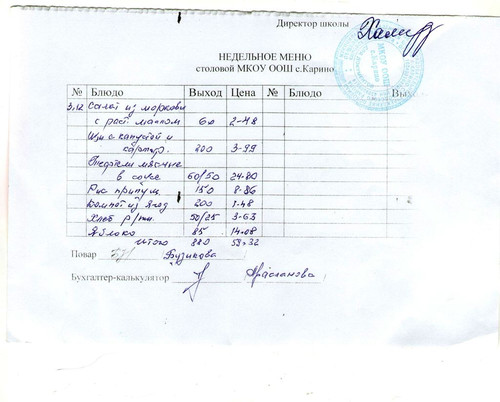 Директор школы
НЕДЕЛЬНОЕ МЕНЮ
столовой МКОУ ООШ с.Карино
№ Блюдо Выход Цена № Блюдо Вых
3.12 Салат из моркови
с раст. маслом 60 2-48
Щи с капустой и
картоф. 200 3-99
Тефтели мясные
в соусе 60/50 24-80
Рис припущ. 150 8-86
Компот из ягод 200 1-48
Хлеб р/пш. 50/25 3-63
Яблоко 85 14-08
Итого 880 59-32
Повар Бузикова
Бухгалтер-калькулятор
МКОУ ООШ